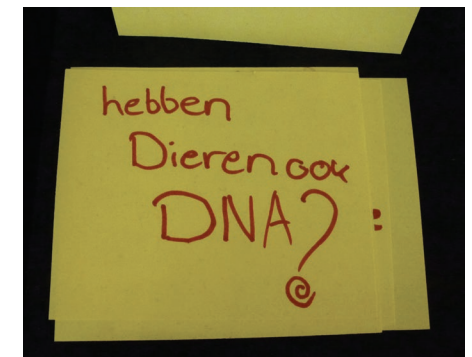 hebben
Dieren ook
DNA?